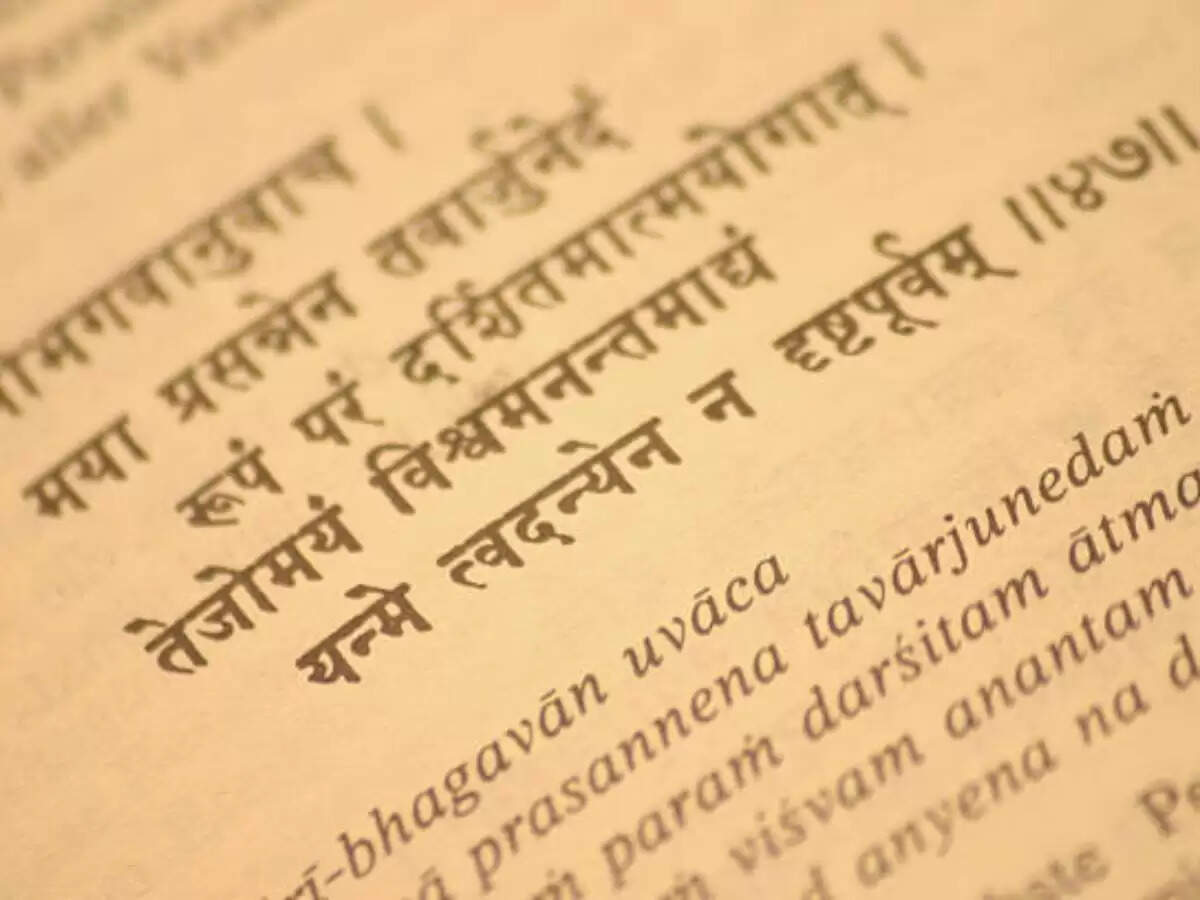 aller
भगवानुवाच ।
मया प्रसन्नेन तवार्जुनेदं
रूपं परं दर्शितमात्मयोगात् ।
तेजोमयं विश्वमनन्तमाद्यं
यन्मे त्वदन्येन न दृष्टपूर्वम् ॥४७॥
rī-bhagavān uvāca
ā prasannena tavārjunedaṁ
ṁ paraṁ darśitam ātma
ṁ viśvam anantam
d anyena na d